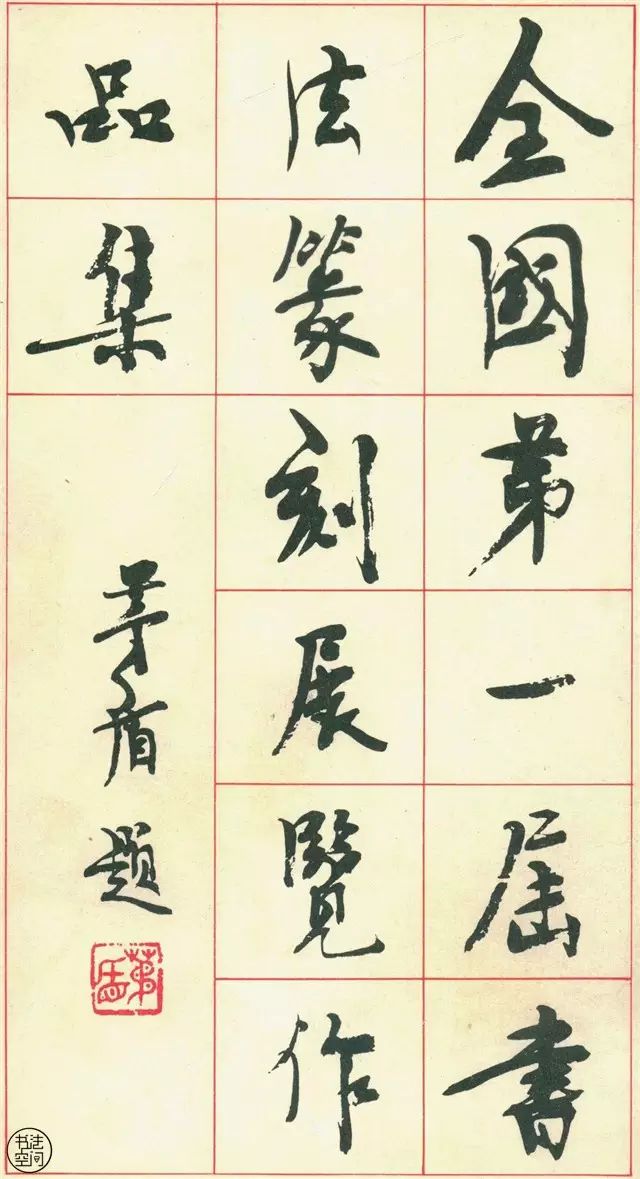 全國第一屆書
法篆刻展覽作
品集
茅盾題
茅盾
书法
空间